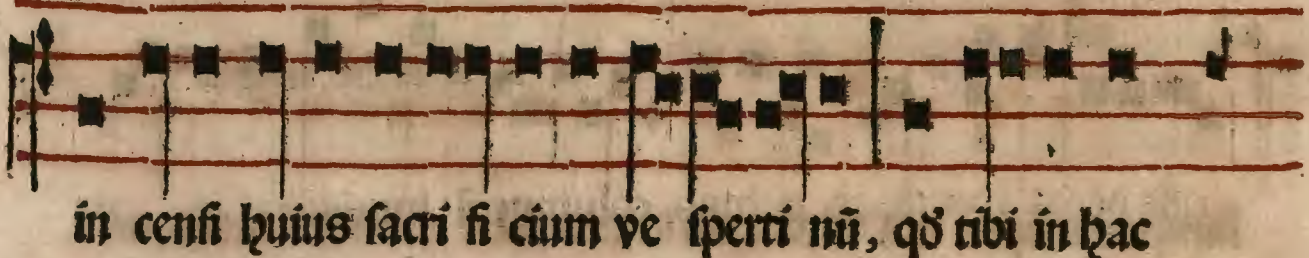 in cenſi huius ſacri fi cium ve ſperti nū, qď tibi in hac